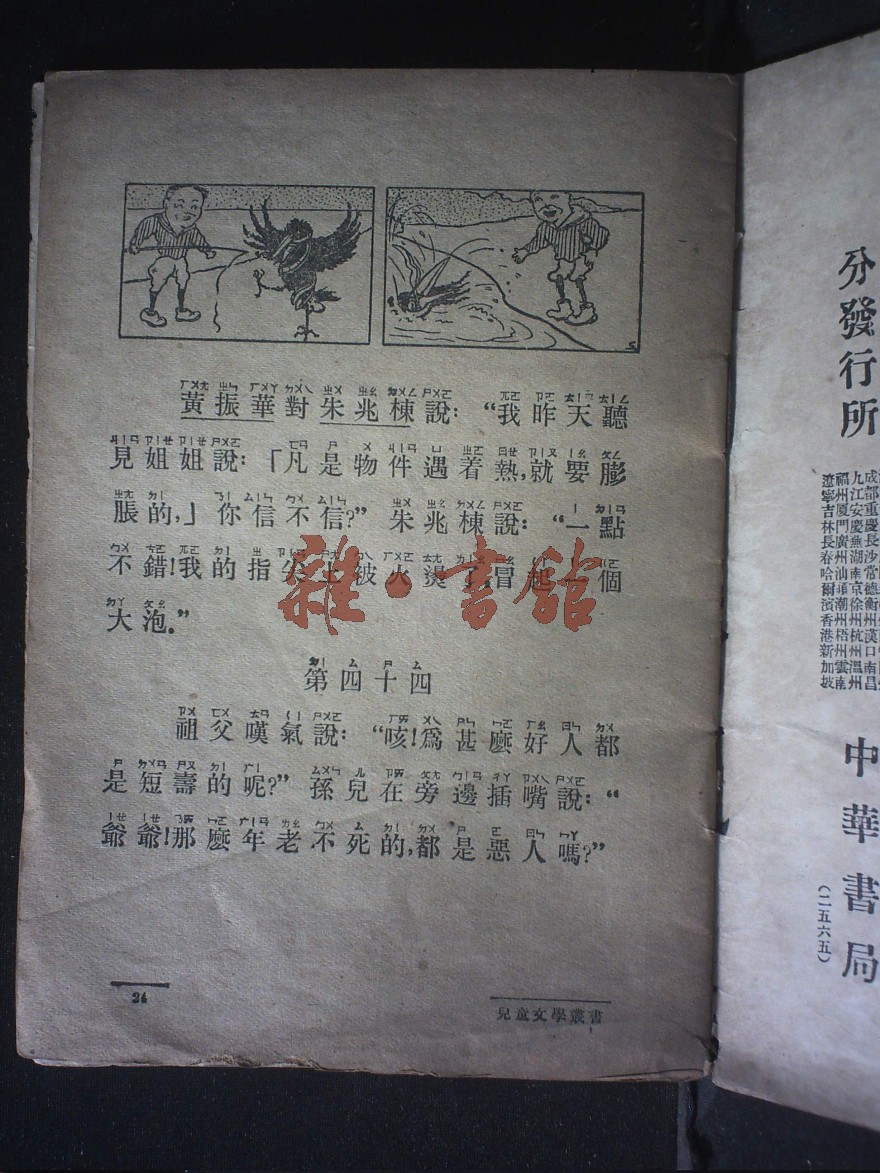 黃振華對朱兆棟說：“我昨天聽
見姐姐說：「凡是物件遇着熱，就要膨
脹的，」你信不信？” 朱兆棟說：“一點
不錯！我的指尖上被火燙了，冒起一個
大泡。”
雜·書館
第四十四
祖父嘆氣說：“咳！爲甚麼好人都
是短壽的呢？” 孫兒在旁邊插嘴說：“
爺爺！那麼年老不死的，都是惡人嗎？”
24
兒童文學叢書
1
分發行所
九江安慶蕪湖南京徐州杭州溫州
福州厦門廣州汕頭潮州梧州雲南
遼寧吉林長春哈爾濱香港新加坡
中華書局
（二五六五）